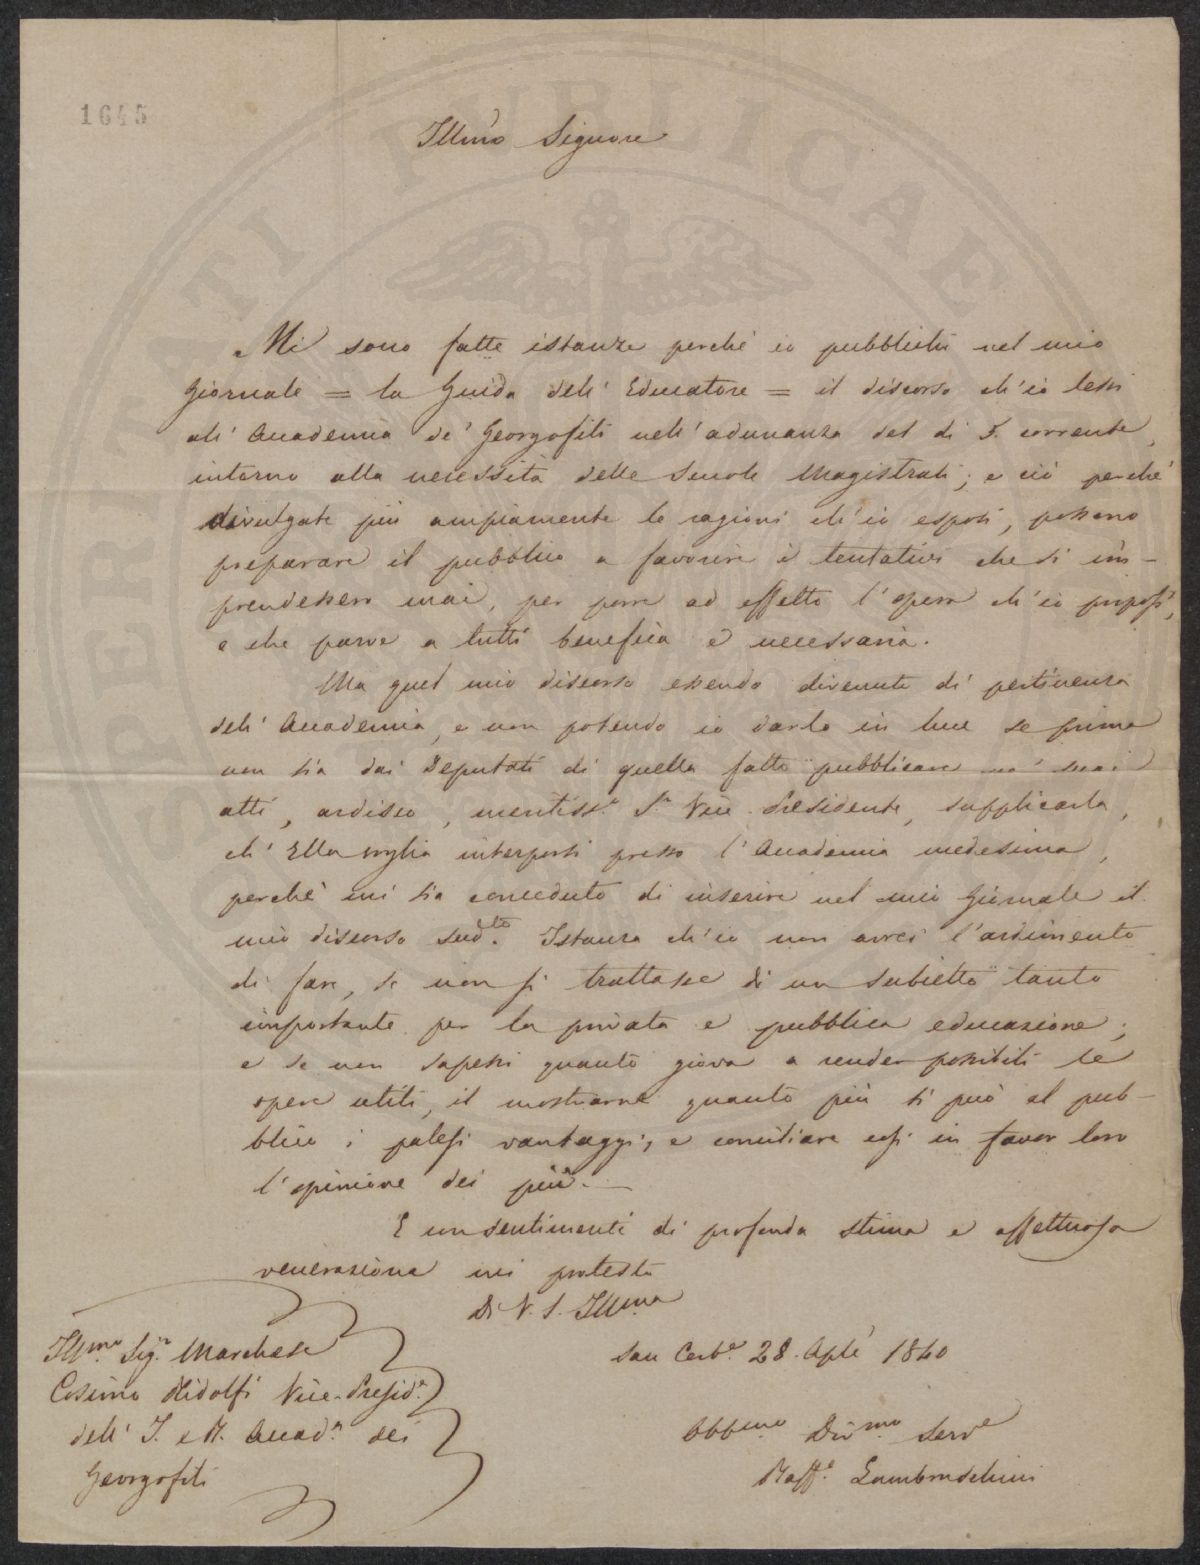 1645
Illmo Signore
Mi sono fatte istanze perché io pubblichi nel mio
Giornale = la Guida dell' Educatore = il discorso ch'io lessi
all' Accademia de' Georgofili nell' adunanza del dì 5. corrente,
intorno alla necessità delle Scuole Magistrali; e ciò perché
divulgate più ampiamente le ragioni ch'io esposi, possano
preparare il pubblico a favorire i tentativi che si im-
prendessero mai, per porre ad effetto l'opera ch'io proposi,
e che parve a tutti benefica e necessaria.
Ma quel mio discorso essendo divenuto di pertinenza
dell' Accademia, e non potendo io darlo in luce se prima
non sia dai Deputati di quella fatto pubblicare ne' suoi
atti, ardisco, meritiss.o Sr. Vice-Presidente, supplicarla,
ch' Ella voglia interporsi presso l' Accademia medesima,
perché mi sia conceduto di inserire nel mio Giornale il
mio discorso sudto. Istanza ch'io non avrei l'ardimento
di fare, se non si trattasse di un subietto tanto
importante per la privata e pubblica educazione;
e se non sapessi quanto giova a render possibili le
opere utili, il mostrarne quanto più si può al pub-
blico i palesi vantaggi; e conciliare così in favor loro
l'opinione dei più.
E con sentimenti di profonda stima e affettuosa
venerazione mi protesto
Di V. S. Illma
San Cerb.e 28. Aple 1840
Illmo. Sig.r Marchese
Cosimo Ridolfi Vice-Presid.e
dell' I. e R. Accad.a dei
Georgofili
Obbmo Divmo Serve
Raff.e Lambruschini
SPERITATI PUBLICAE